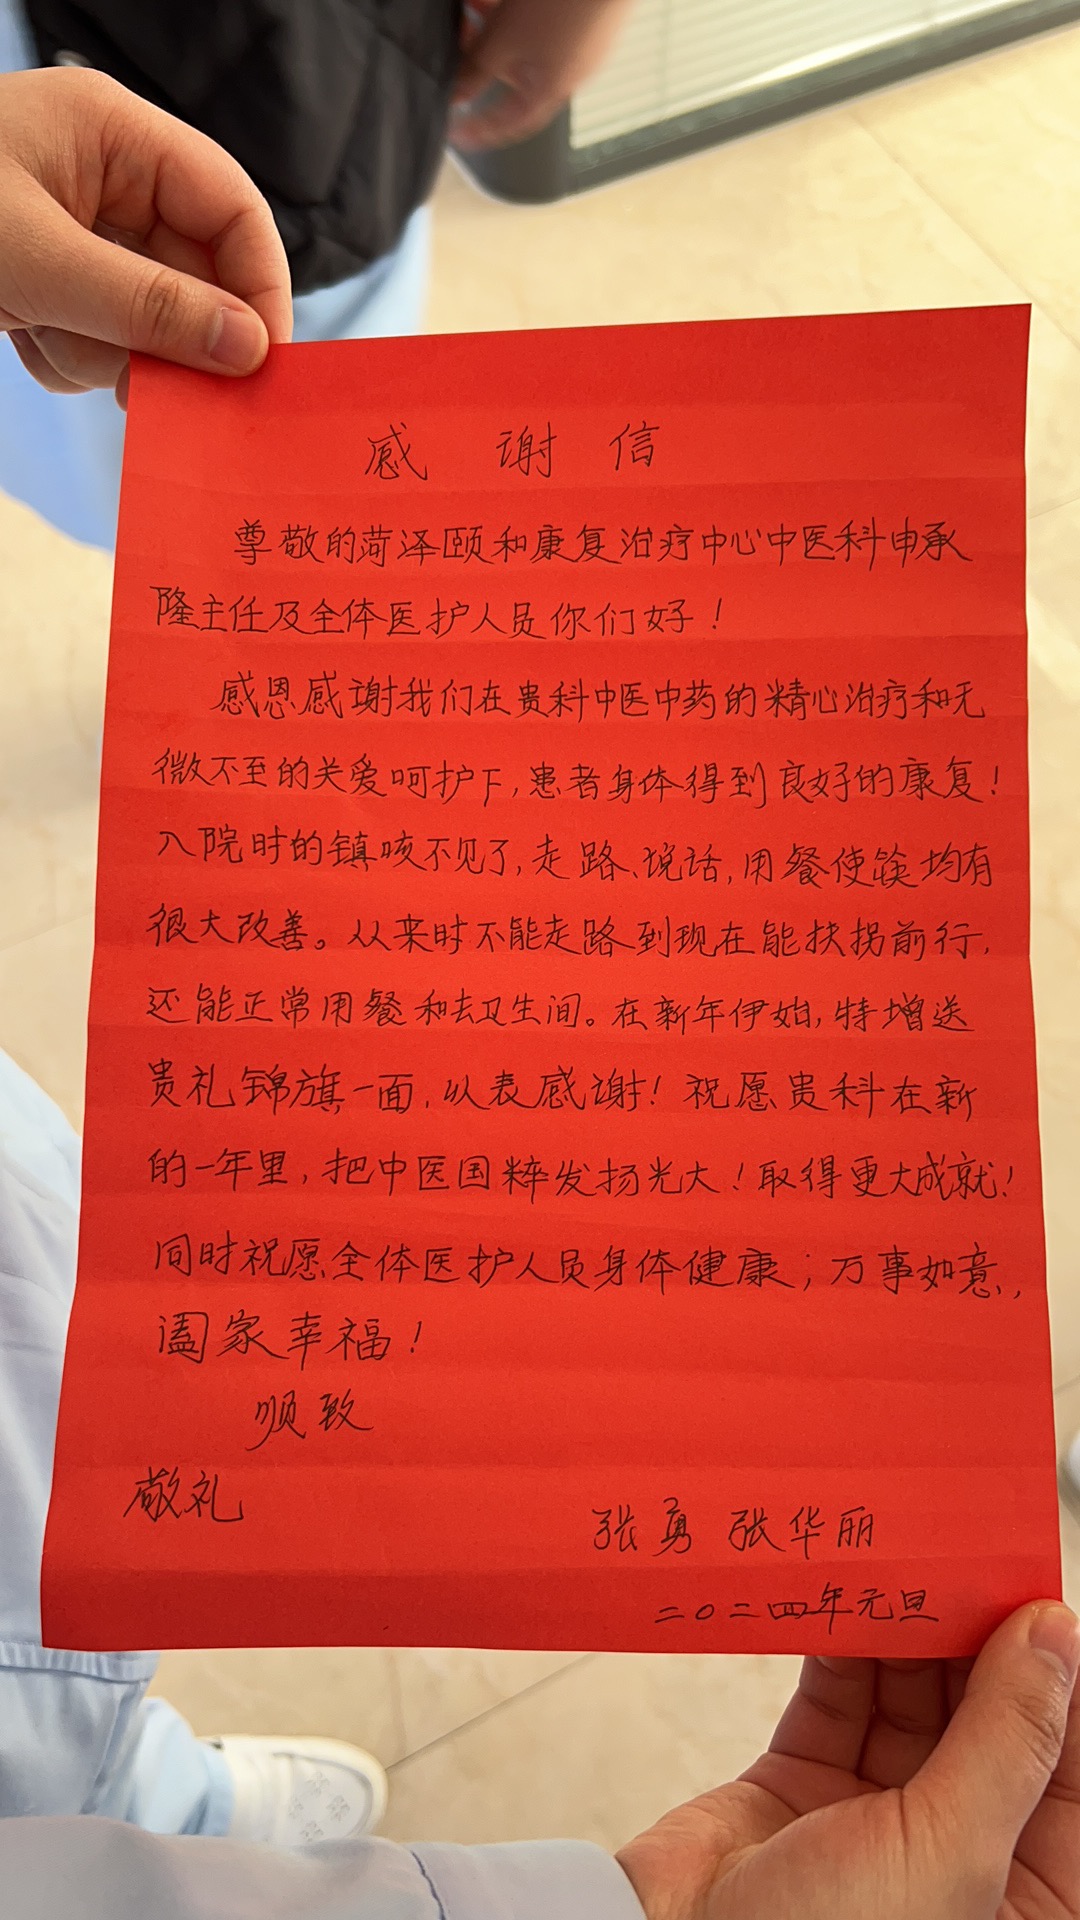 感谢信
尊敬的菏泽颐和康复治疗中心中医科申承
隆主任及全体医护人员你们好！
感恩感谢我们在贵科中医中药的精心治疗和无
微不至的关爱呵护下，患者身体得到良好的康复！
入院时的镇咳不见了，走路、说话，用餐使筷均有
很大改善。从来时不能走路到现在能扶拐前行，
还能正常用餐和去卫生间。在新年伊始，特增送
贵礼锦旗一面，以表感谢！祝愿贵科在新
的一年里，把中医国粹发扬光大！取得更大成就！
同时祝愿全体医护人员身体健康；万事如意，
阖家幸福！
顺致
敬礼
张勇 张华丽
二〇二四年元旦